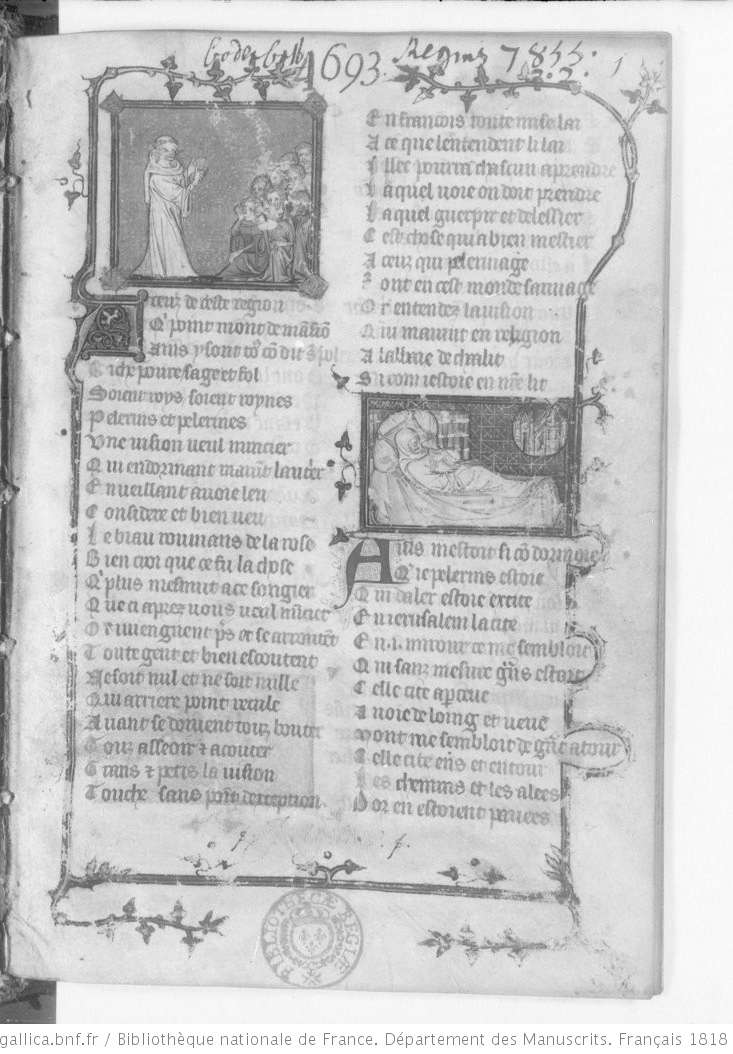 4693.
Regius 7855.
2.2.
1
A ceuz de ceste region
Qi point nont de mansiõ
Ains y sont toz cõ dit s. pol
Riche poure sage et fol
Soient roys soient roynes
Pelerins et pelerines
Vne vision veul nuncier
Qui en dormant mauint lautrer
En veillant auoie leu
Considere et bien veu
Le biau roumans de la rose
Bien croi que ce fu la chose
Qi plus mesmut a ce songier
Que ci aprez vous veul nũcier
Or viengnent
Toute gent et bien escoutent
Ne soit nul et ne soit nulle
Qui arriere point recule
Auant se doiuent touz bouter
Touz asseoir & acouter
Grans & petis la vision
Touche sans point dexception
En francois toute mise lai
A ce que lentendent li lai
Illec pourra chascun aprendre
Laquel uoie on doit prendre
Laquel guerpir et delessier
Cest chose qui a bien mestier
A ceuz qui pelerinage
Font en cest monde sauuage
Or entendez la uision
Qui mauint en religion
A labbaie de chalit
Si com iestoie en mõ lit
Auis mestoit si cõ dormoie
Qe ie pelerins estoie
Qui daler estoie excite
En ierusalem la cite
En .i. mirour ce me sembloit
Qui sanz mesure grãs estoit
Celle cite aperceue
Auoie de loing et ueue
Mont me sembloit de grãt atour
Celle cite ens et entour
Les chemins et les alees
Dor en estoient pauees
BIBLIOTHECÆ REGIÆ
gallica.bnf.fr / Bibliothèque nationale de France. Département des Manuscrits. Français 1818